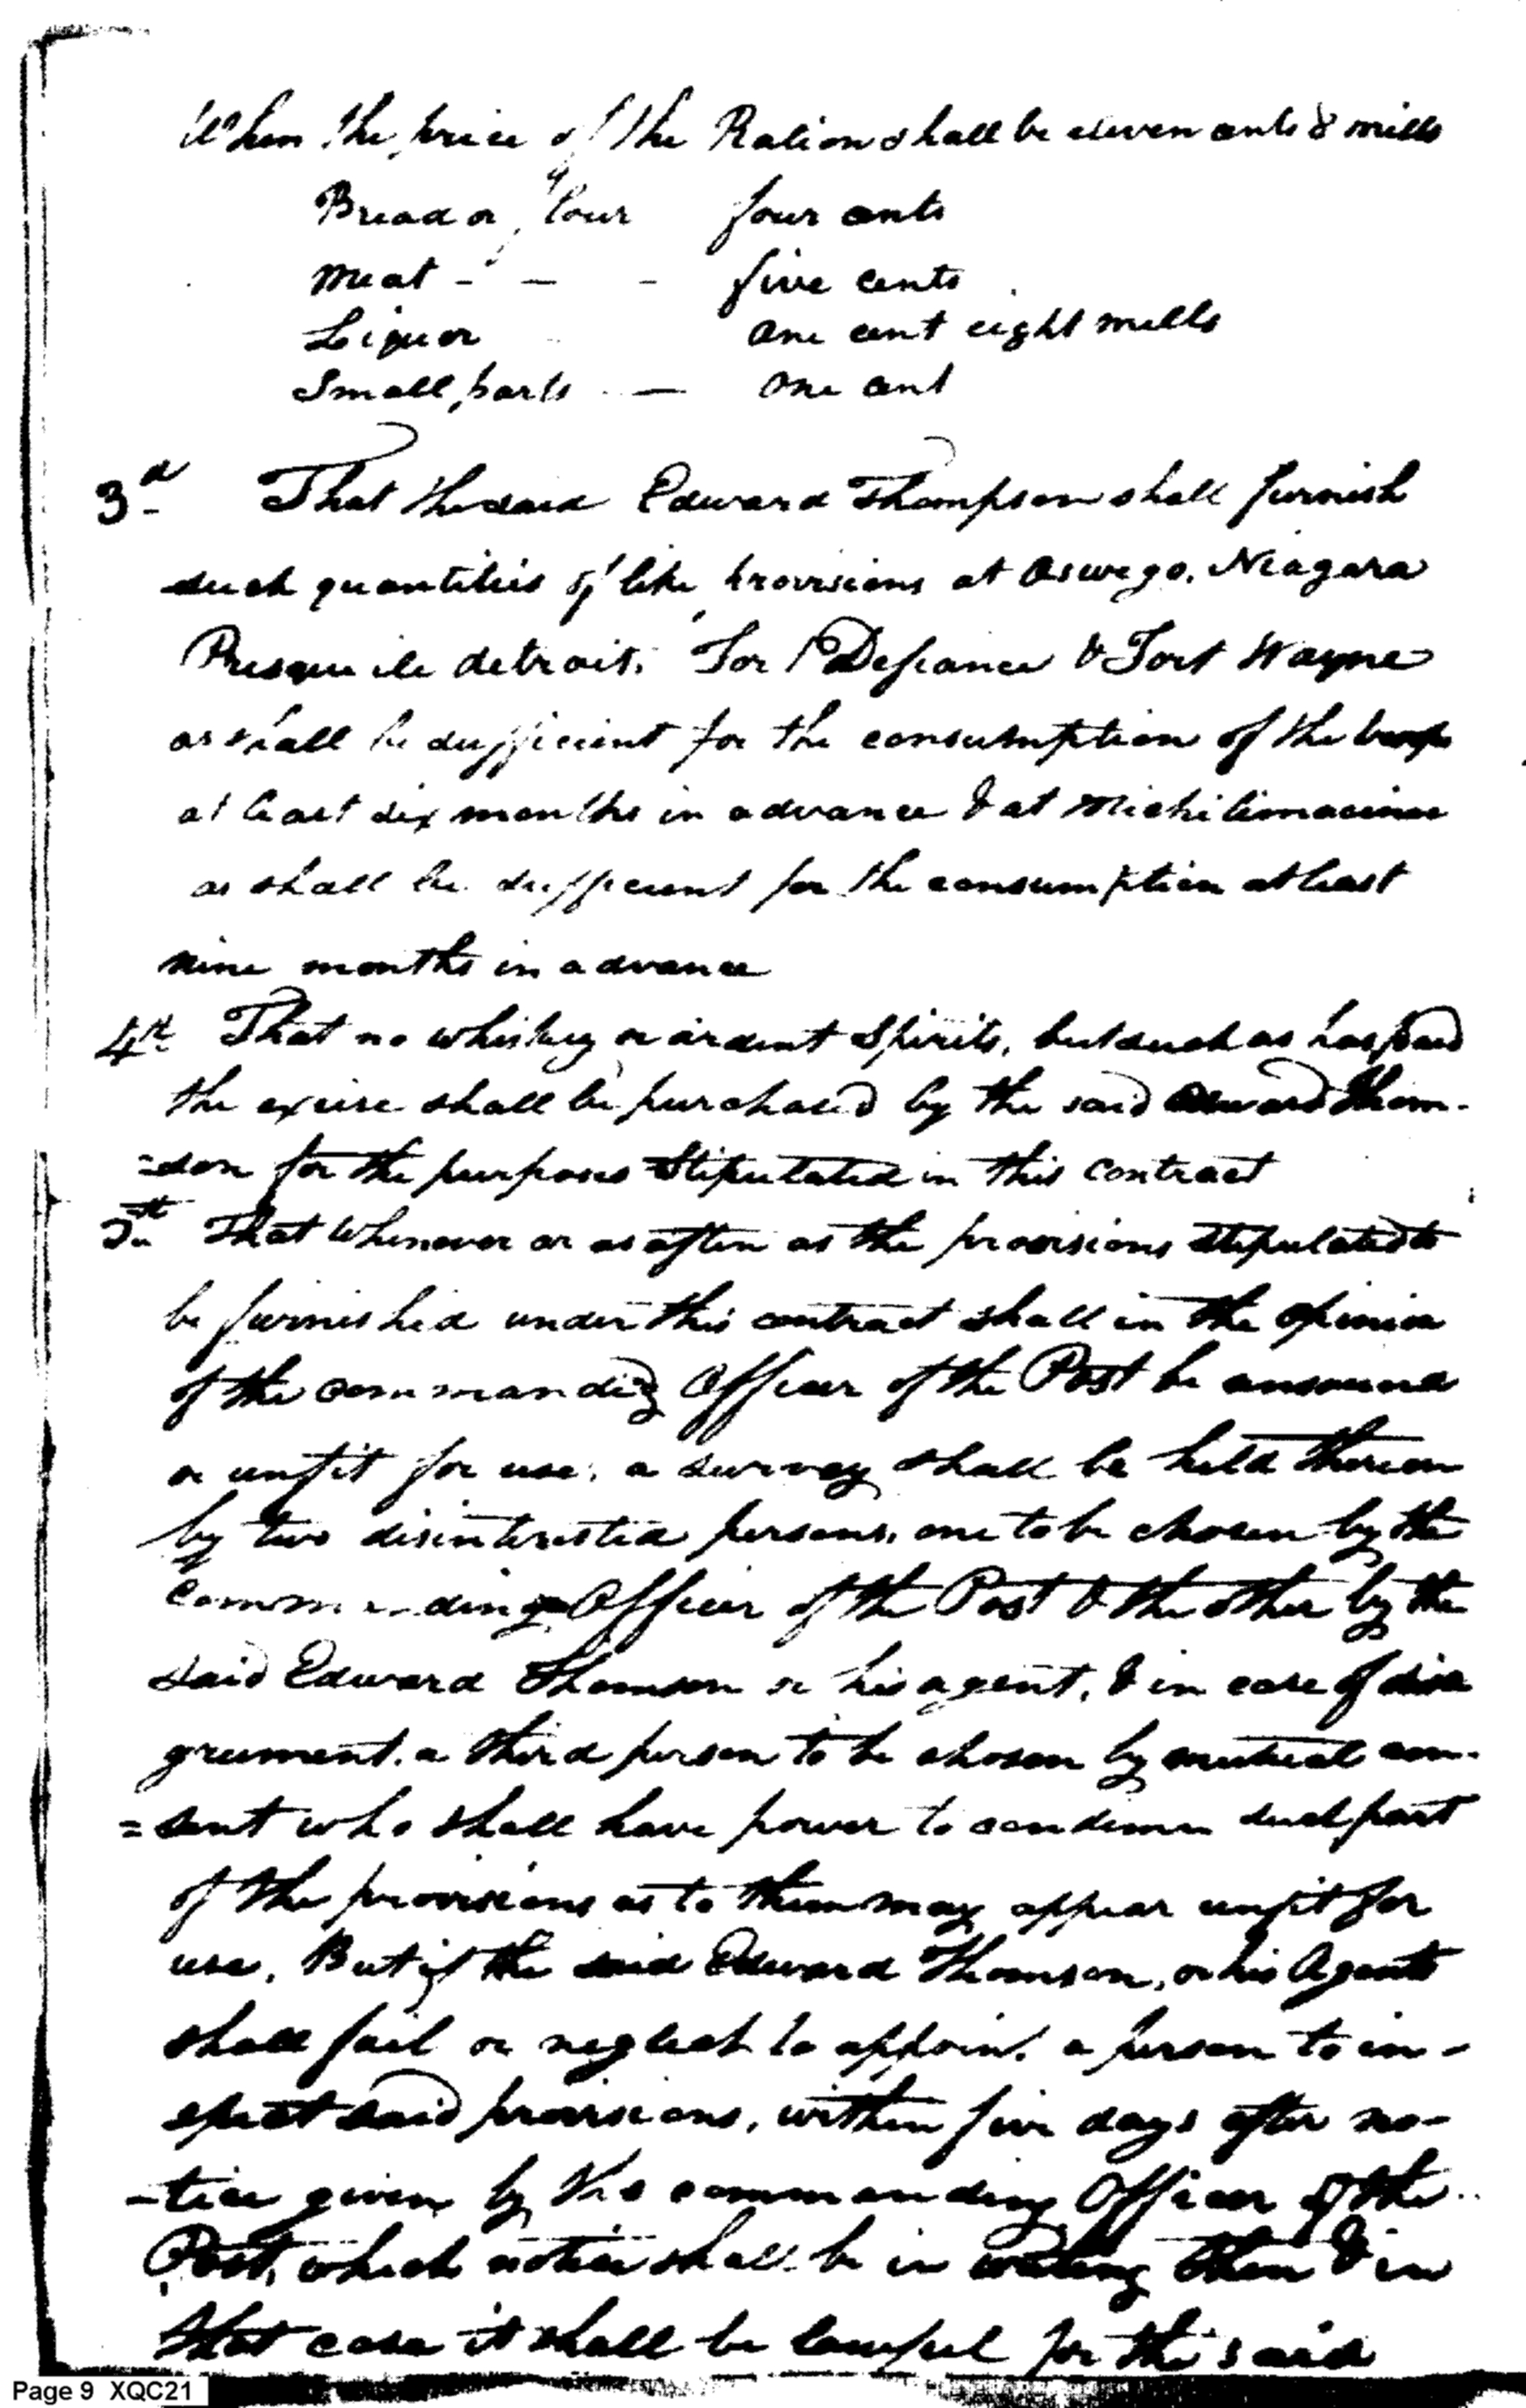 When the price of the Ration shall be eleven cents 8 mills
Bread or flour four cents
Meat - - - five cents
Liquor one cent eight mills
Small parts — one cent
3d That the said Edward Thompson shall furnish
such quantities of like provisions at Oswego, Niagara
Presqu ile detroit. Fort Defiance & Fort Wayne
as shall be sufficient for the consumption of the troops
at least six months in advance & at Michilimacinac
as shall be sufficient for the consumption at least
nine months in advance
4th That no whiskey or ardent Spirits, but such as has paid
the excise shall be purchased by the said Edward Thom-
=son for the purposes Stipulated in this contract
5th That Whenever or as often as the provisions stipulated to
be furnished under this contract shall in the opinion
of the commanding Officer of the Post be unsound
or unfit for use, a survey shall be held thereon
by two disinterested persons, one to be chosen by the
Commanding Officer of the Post & the other by the
said Edward Thomson or his agent, & in case of disa
greement. a third person to be chosen by mutual con-
=sent who shall have power to condemn such part
of the provisions as to them may appear unfit for
use. But if the said Edward Thomson, or his Agents
shall fail or neglect to appoint a person to in-
spect said provisions, within five days after no-
-tice given by the commanding Officer of the
Post, which notice shall be in writing then & in
that case it shall be lawful for the said
Page 9 XQC21